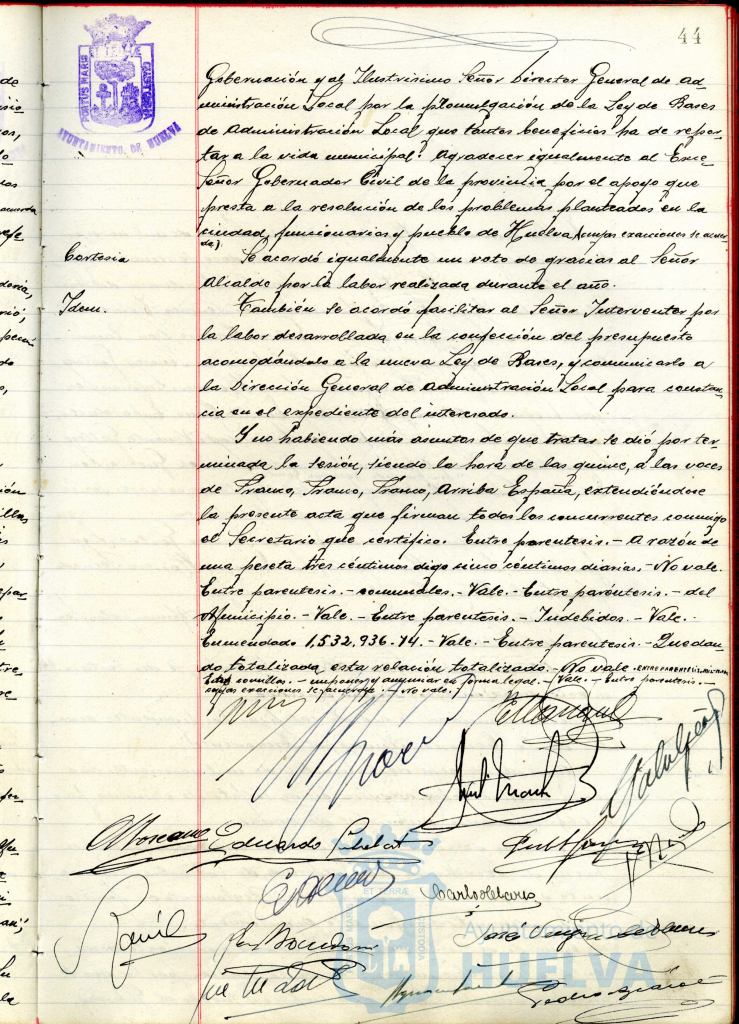 44
PORTUS MARIS
AYUNTAMIENTO DE HUELVA
Gobernación y al Ilustrísimo Señor Director General de Ad-
ministración Local por la promulgación de la Ley de Bases
de Administración Local que tantos beneficios ha de repor-
tar a la vida municipal. Agradecer igualmente al Exc
Señor Gobernador Civil de la provincia por el apoyo que
presta a la resolución de los problemas planteados en la
ciudad, funcionarios y pueblo de Huelva (cuyas exacciones se acuer-
da).
Cortesia
Se acordó igualmente un voto de gracias al Señor
Alcalde por la labor realizada durante el año.
Idem.
También se acordó facilitar al Señor Interventor por
la labor desarrollada en la confección del presupuesto
acomodándolo a la nueva Ley de Bases, y comunicarlo a
la Dirección General de Administración Local para constan-
cia en el expediente del interesado.
Y no habiendo más asuntos de que tratar se dió por ter-
minada la sesión, siendo la hora de las quince, a las voces
de Franco, Franco, Franco, Arriba España, extendiéndose
la presente acta que firman todos los concurrentes conmigo
el Secretario que certifico. Entre parentesis.- A razón de
una peseta tres céntimos digo cinco céntimos diarias.- No vale.
Entre parentesis.- comunales.- Vale.- Entre paréntesis.- del
Municipio.- Vale.- Entre parentesis.- Indebidos.- Vale.-
Enmendado 1,532,936.74.- Vale.- Entre parentesis.- Quedan-
do totalizada esta relación totalizado.- No vale.
comillas.- imponer y anunciar en forma legal.- Vale.- Entre parentesis.-
cuyas exacciones se acuerda.- No vale.
Eduardo
José
Pedro
Ayuntamiento de
HUELVA